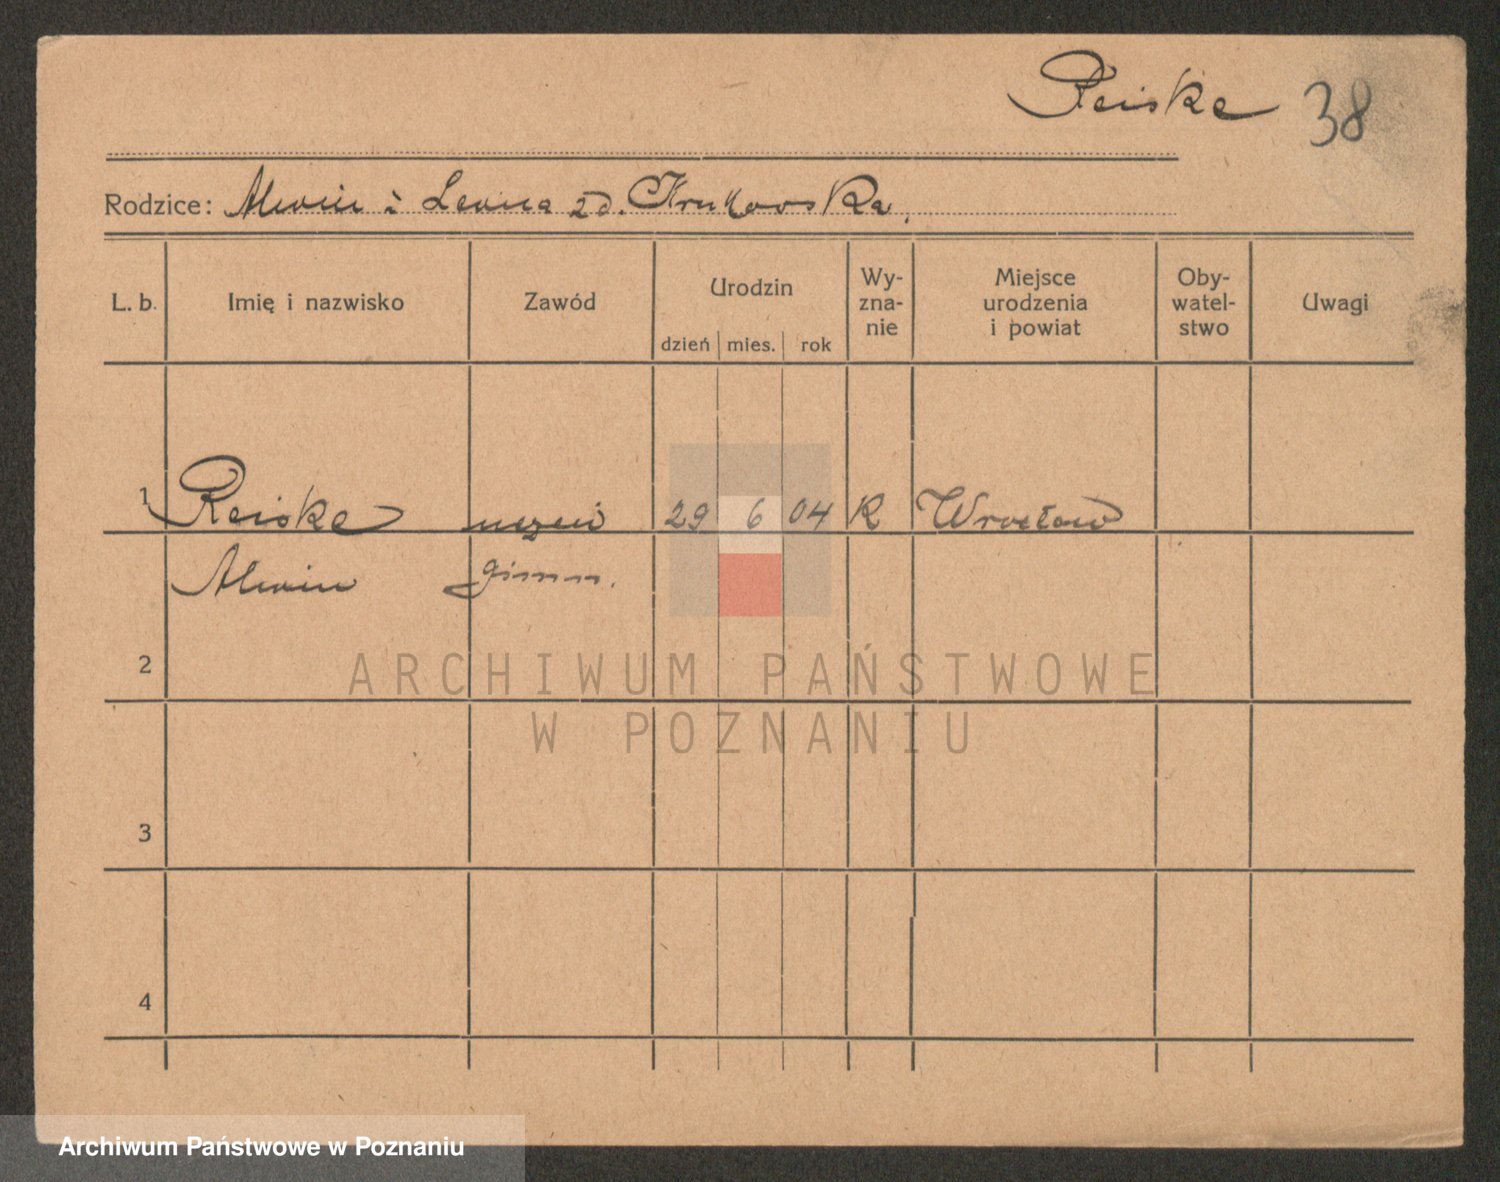 Reiske 38
Rodzice: Alwin i Leona zd. Krukowska.
L. b. Imię i nazwisko Zawód Urodzin Wy- Miejsce Oby- Uwagi
zna- urodzenia watel-
nie i powiat stwo
dzień mies. rok
1 Reiske uczeń 29 6 04 K Wrocław
Alwin gimn.
2
ARCHIWUM PAŃSTWOWE
W POZNANIU
3
4
Archiwum Państwowe w Poznaniu